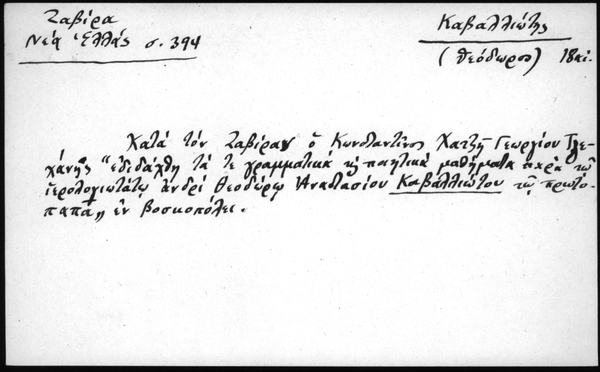 Ζαβίρα
Νεά Ἑλλάς σ. 394
Καβαλλιώτης
(Θεόδωρος) 18 αἰ.
Κατά τόν Ζαβίραν ὁ Κωνσταντῖνος Χατζῆ Γεωργίου Τζε-
χάνης "ἐδιδάχθη τά τε γραμματικά κ ποιητικά μαθήματα παρά τῷ
ἱερολογιωτάτῳ ἀνδρί Θεοδώρῳ Ἀναστασίου Καβαλλιώτου τῷ πρωτο-
παπᾷ" ἐν Βοσκοπόλει.